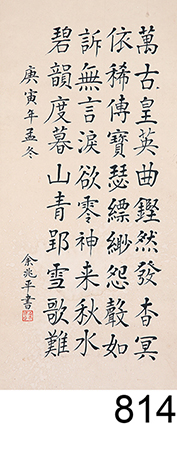 萬古皇英曲鏗然發杳冥
依稀傳寶瑟縹緲怨聲如
訴無言淚欲零神来秋水
碧韻度暮山青郢雪歌難
庚寅年孟冬
余兆平書
814